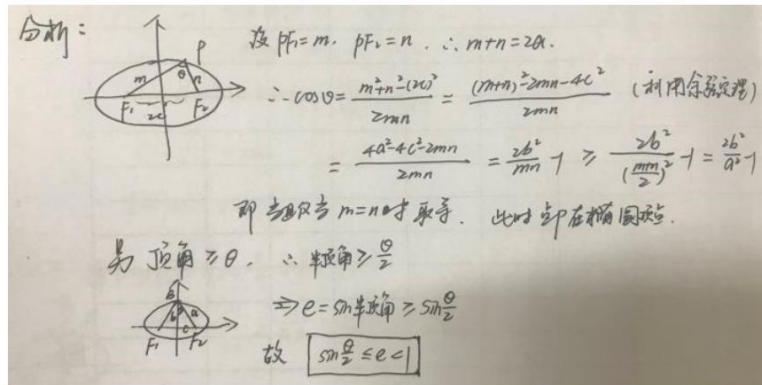 分析:
P
m θ n
F₁ 2c F₂
设 PF₁=m. PF₂=n. ∴ m+n=2a.
∴ cosθ = \frac{m²+n²-(2c)²}{2mn} = \frac{(m+n)²-2mn-4c²}{2mn} (利用余弦定理)
= \frac{4a²-4c²-2mn}{2mn} = \frac{2b²}{mn} -1 ≥ \frac{2b²}{(\frac{m+n}{2})²} -1 = \frac{2b²}{a²} -1
即当且仅当 m=n时取等. 此时点P在椭圆顶点.
顶角≥θ. ∴ 半顶角≥\frac{θ}{2}
B
b a
c
F₁ F₂
⇒ e=sin半顶角 ≥ sin\frac{θ}{2}
故 sin\frac{θ}{2} ≤ e < 1